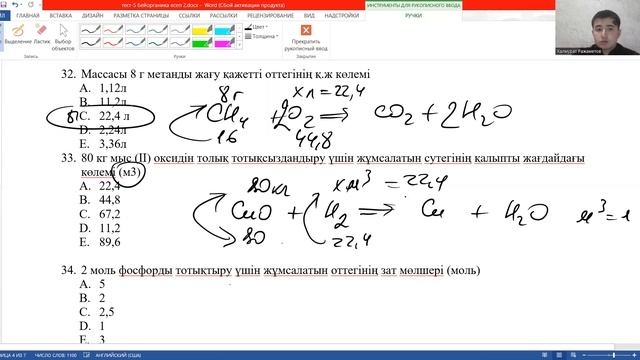 тест-5 бейорганика есеп 2.docx - Word (Сбой активации продукта)
ИНСТРУМЕНТЫ ДЛЯ РУКОПИСНОГО ВВОДА
ВСТАВКА ДИЗАЙН РАЗМЕТКА СТРАНИЦЫ ССЫЛКИ РАССЫЛКИ РЕЦЕНЗИРОВАНИЕ ВИД НАДСТРОЙКИ РУЧКИ
Выделение Ластик Выбор объектов
Цвет
Толщина
Прекратить рукописный ввод
Запись Ручки Закрыть
Калмурат Рахаметов
32. Массасы 8 г метанды жағу қажетті оттегінің қ.ж көлемі
A. 1,12л
B. 11,2л
C. 22,4 л
D. 2,24л
E. 3,36л
8г x л = 22,4
CH4 + 2O2 => CO2 + 2H2O
16 44,8
33. 80 кг мыс (II) оксидін толық тотықсыздандыру үшін жұмсалатын сутегінің қалыпты жағдайдағы
көлемі (м3)
A. 22,4
B. 44,8
C. 67,2
D. 11,2
E. 89,6
80кг x м³ = 22,4
CuO + H2 => Cu + H2O
80 22,4
34. 2 моль фосфорды тотықтыру үшін жұмсалатын оттегінің зат мөлшері (моль)
A. 5
B. 2
C. 2,5
D. 1
E. 3
СТРАНИЦА 4 ИЗ 7 ЧИСЛО СЛОВ: 1100 АНГЛИЙСКИЙ (США)